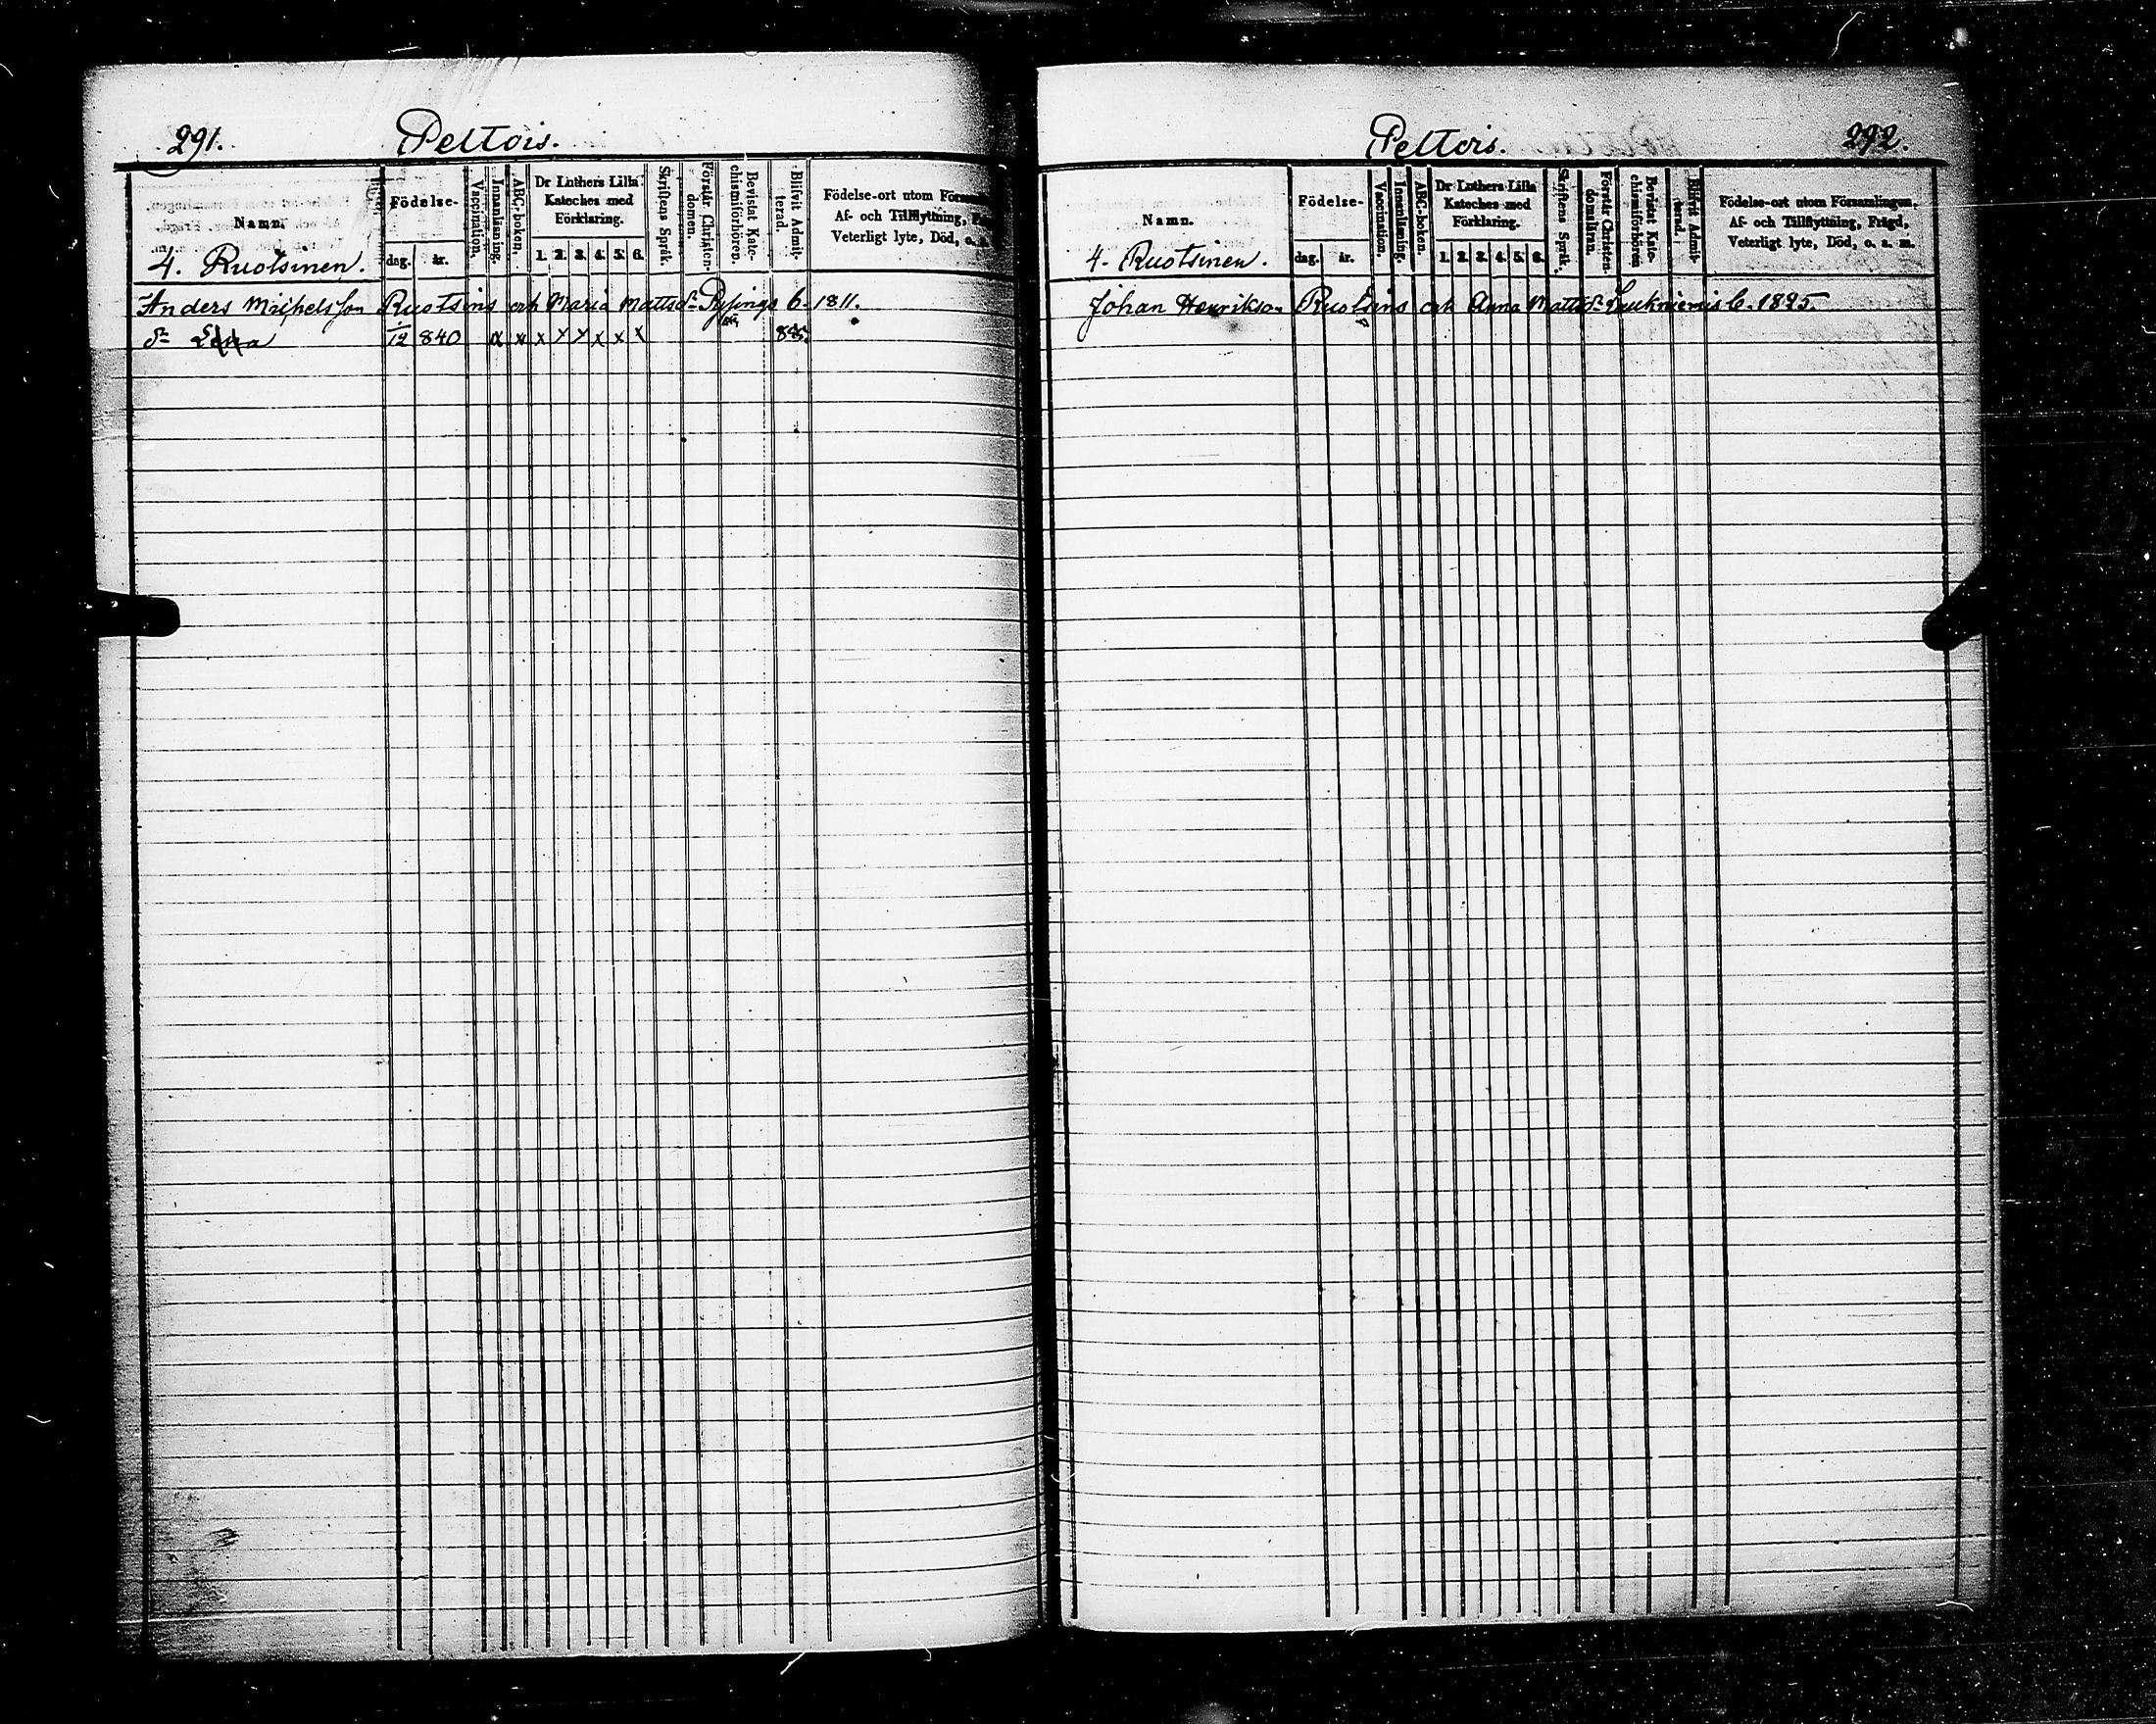 291.
Peltois.
Namn.
4. Ruotsinen.
Födelse-
dag. år.
Vaccination.
Innanläsning.
ABC-boken.
Dr Luthers Lilla
Kateches med
Förklaring.
1. 2. 3. 4. 5. 6.
Skriftens Språk.
Förstår Christen-
domen.
Bevistat Kate-
chismiförhören.
Blifvit Admit-
terad.
Födelse-ort utom
Af- och Tillflyttning,
Veterligt lyte, Död, o. a.
Anders Mickelsson Ruotsins och Maria Mattsdr 6. 1811.
dr Lena 12 840 x x x x x x x x 855.
Peltois.
292.
Namn.
4. Ruotsinen.
Födelse-
dag. år.
Vaccination.
Innanläsning.
ABC-boken.
Dr Luthers Lilla
Kateches med
Förklaring.
1. 2. 3. 4. 5. 6.
Skriftens Språk.
Förstår Christen-
domsläran.
Bevistat Kate-
chismiförhören
Blifvit Admit-
terad.
Födelse-ort utom Församlingen,
Af- och Tillflyttning, Frägd,
Veterligt lyte, Död, o. s. m.
Johan Henrikson Ruotsins och Anna Mattsdr Laukniemis 6. 1825.